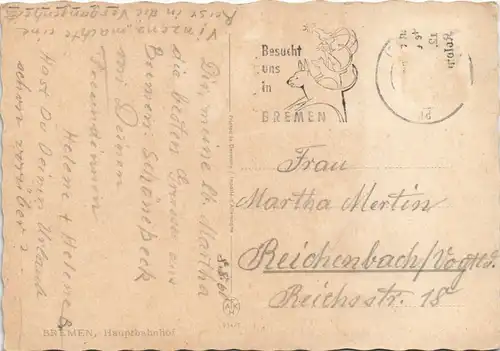 Dir, meine lb. Martha
die besten Grüsse aus
Bremen Schönebeck
von Deinen
Freundinnen
Helene + Helene B
Hast Du Deinen Urlaub
schon vorüber?
Vinzens machte eine
Reise in die Vergangenheit
Besucht
uns
in
BREMEN
Frau
Martha Mertin
Reichenbach/Vogtld.
Reichsstr. 18
BREMEN, Hauptbahnhof
AK